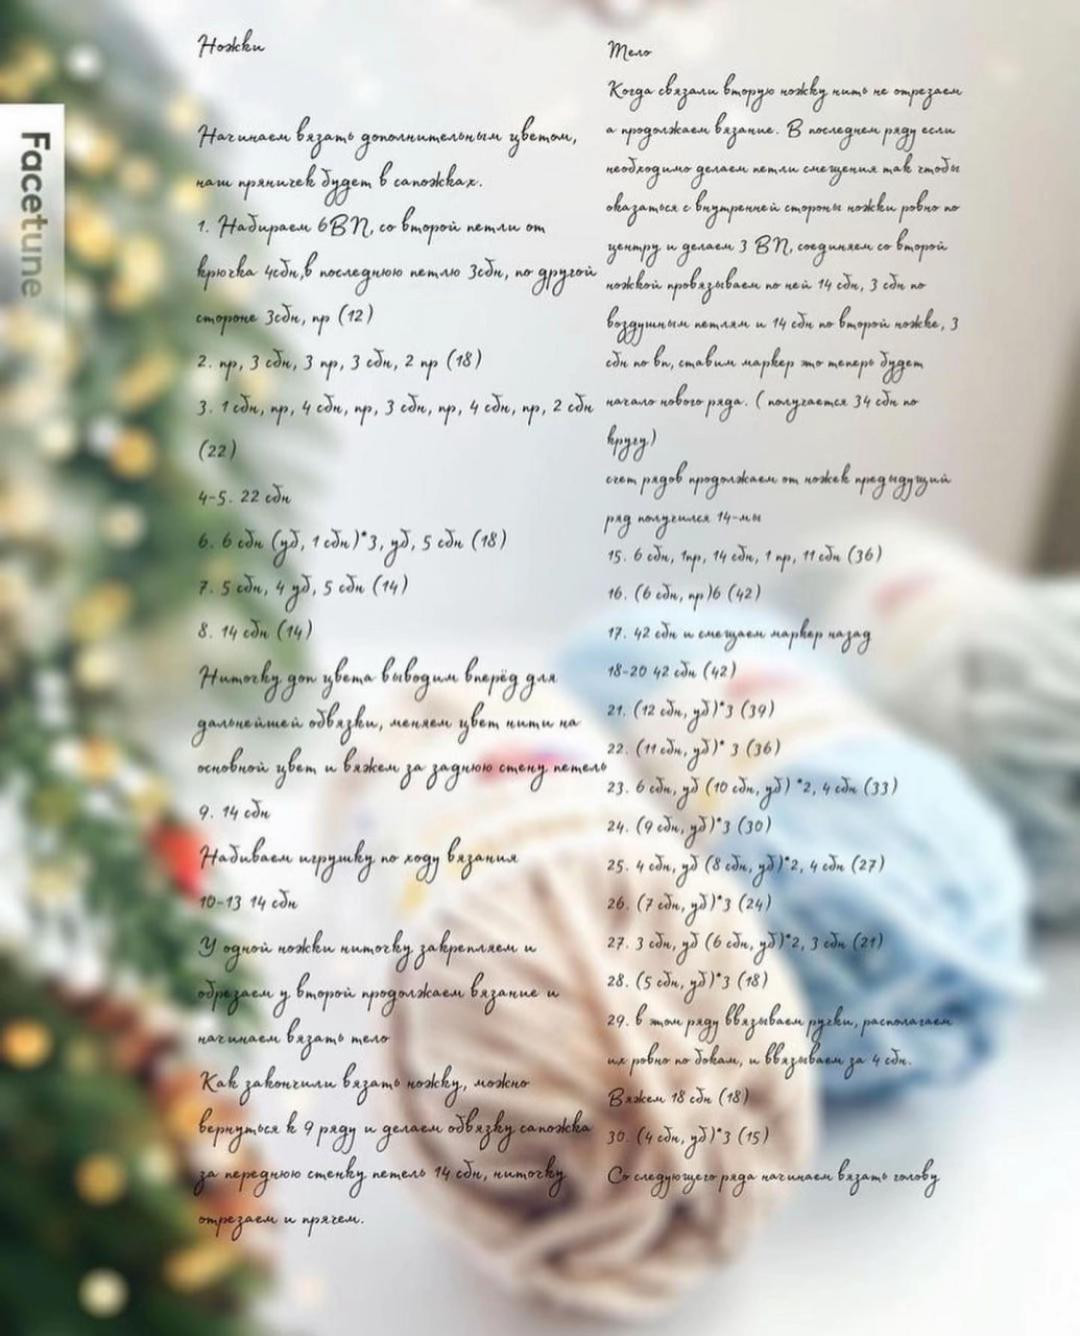 Facetune
Ножки
Начинаем вязать дополнительным цветом,
наш пряничек будет в сапожках.
1. Набираем 6ВП, со второй петли от
крючка 4сбн,в последнюю петлю 3сбн, по другой
стороне 3сбн, пр (12)
2. пр, 3 сбн, 3 пр, 3 сбн, 2 пр (18)
3. 1 сбн, пр, 4 сбн, пр, 3 сбн, пр, 4 сбн, пр, 2 сбн
(22)
4-5. 22 сбн
6. 6 сбн (уб, 1 сбн)*3, уб, 5 сбн (18)
7. 5 сбн, 4 уб, 5 сбн (14)
8. 14 сбн (14)
Ниточку доп цвета выводим вперёд для
дальнейшей обвязки, меняем цвет нити на
основной цвет и вяжем за заднюю стену петель
9. 14 сбн
Набиваем игрушку по ходу вязания
10-13 14 сбн
У одной ножки ниточку закрепляем и
обрезаем у второй продолжаем вязание и
начинаем вязать тело
Как закончили вязать ножку, можно
вернуться к 9 ряду и делаем обвязку сапожка
за переднюю стенку петель 14 сбн, ниточку
отрезаем и прячем.
Тело
Когда связали вторую ножку нить не отрезаем
а продолжаем вязание. В последнем ряду если
необходимо делаем петли смещения так чтобы
оказаться с внутренней стороны ножки ровно по
центру и делаем 3 ВП, соединяем со второй
ножкой провязываем по ней 14 сбн, 3 сбн по
воздушным петлям и 14 сбн по второй ножке, 3
сбн по вп, ставим маркер это теперь будет
начало нового ряда. ( получается 34 сбн по
кругу)
счет рядов продолжаем от ножек предыдущий
ряд получился 14-мы
15. 6 сбн, 1пр, 14 сбн, 1 пр, 11 сбн (36)
16. (6 сбн, пр)6 (42)
17. 42 сбн и смещаем маркер назад
18-20 42 сбн (42)
21. (12 сбн, уб)*3 (39)
22. (11 сбн, уб)* 3 (36)
23. 6 сбн, уб (10 сбн, уб) *2, 4 сбн (33)
24. (9 сбн, уб)*3 (30)
25. 4 сбн, уб (8 сбн, уб)*2, 4 сбн (27)
26. (7 сбн, уб)*3 (24)
27. 3 сбн, уб (6 сбн, уб)*2, 3 сбн (21)
28. (5 сбн, уб)*3 (18)
29. в этом ряду ввязываем ручки, располагаем
их ровно по бокам, и ввязываем за 4 сбн.
Вяжем 18 сбн (18)
30. (4 сбн, уб)*3 (15)
Со следующего ряда начинаем вязать голову